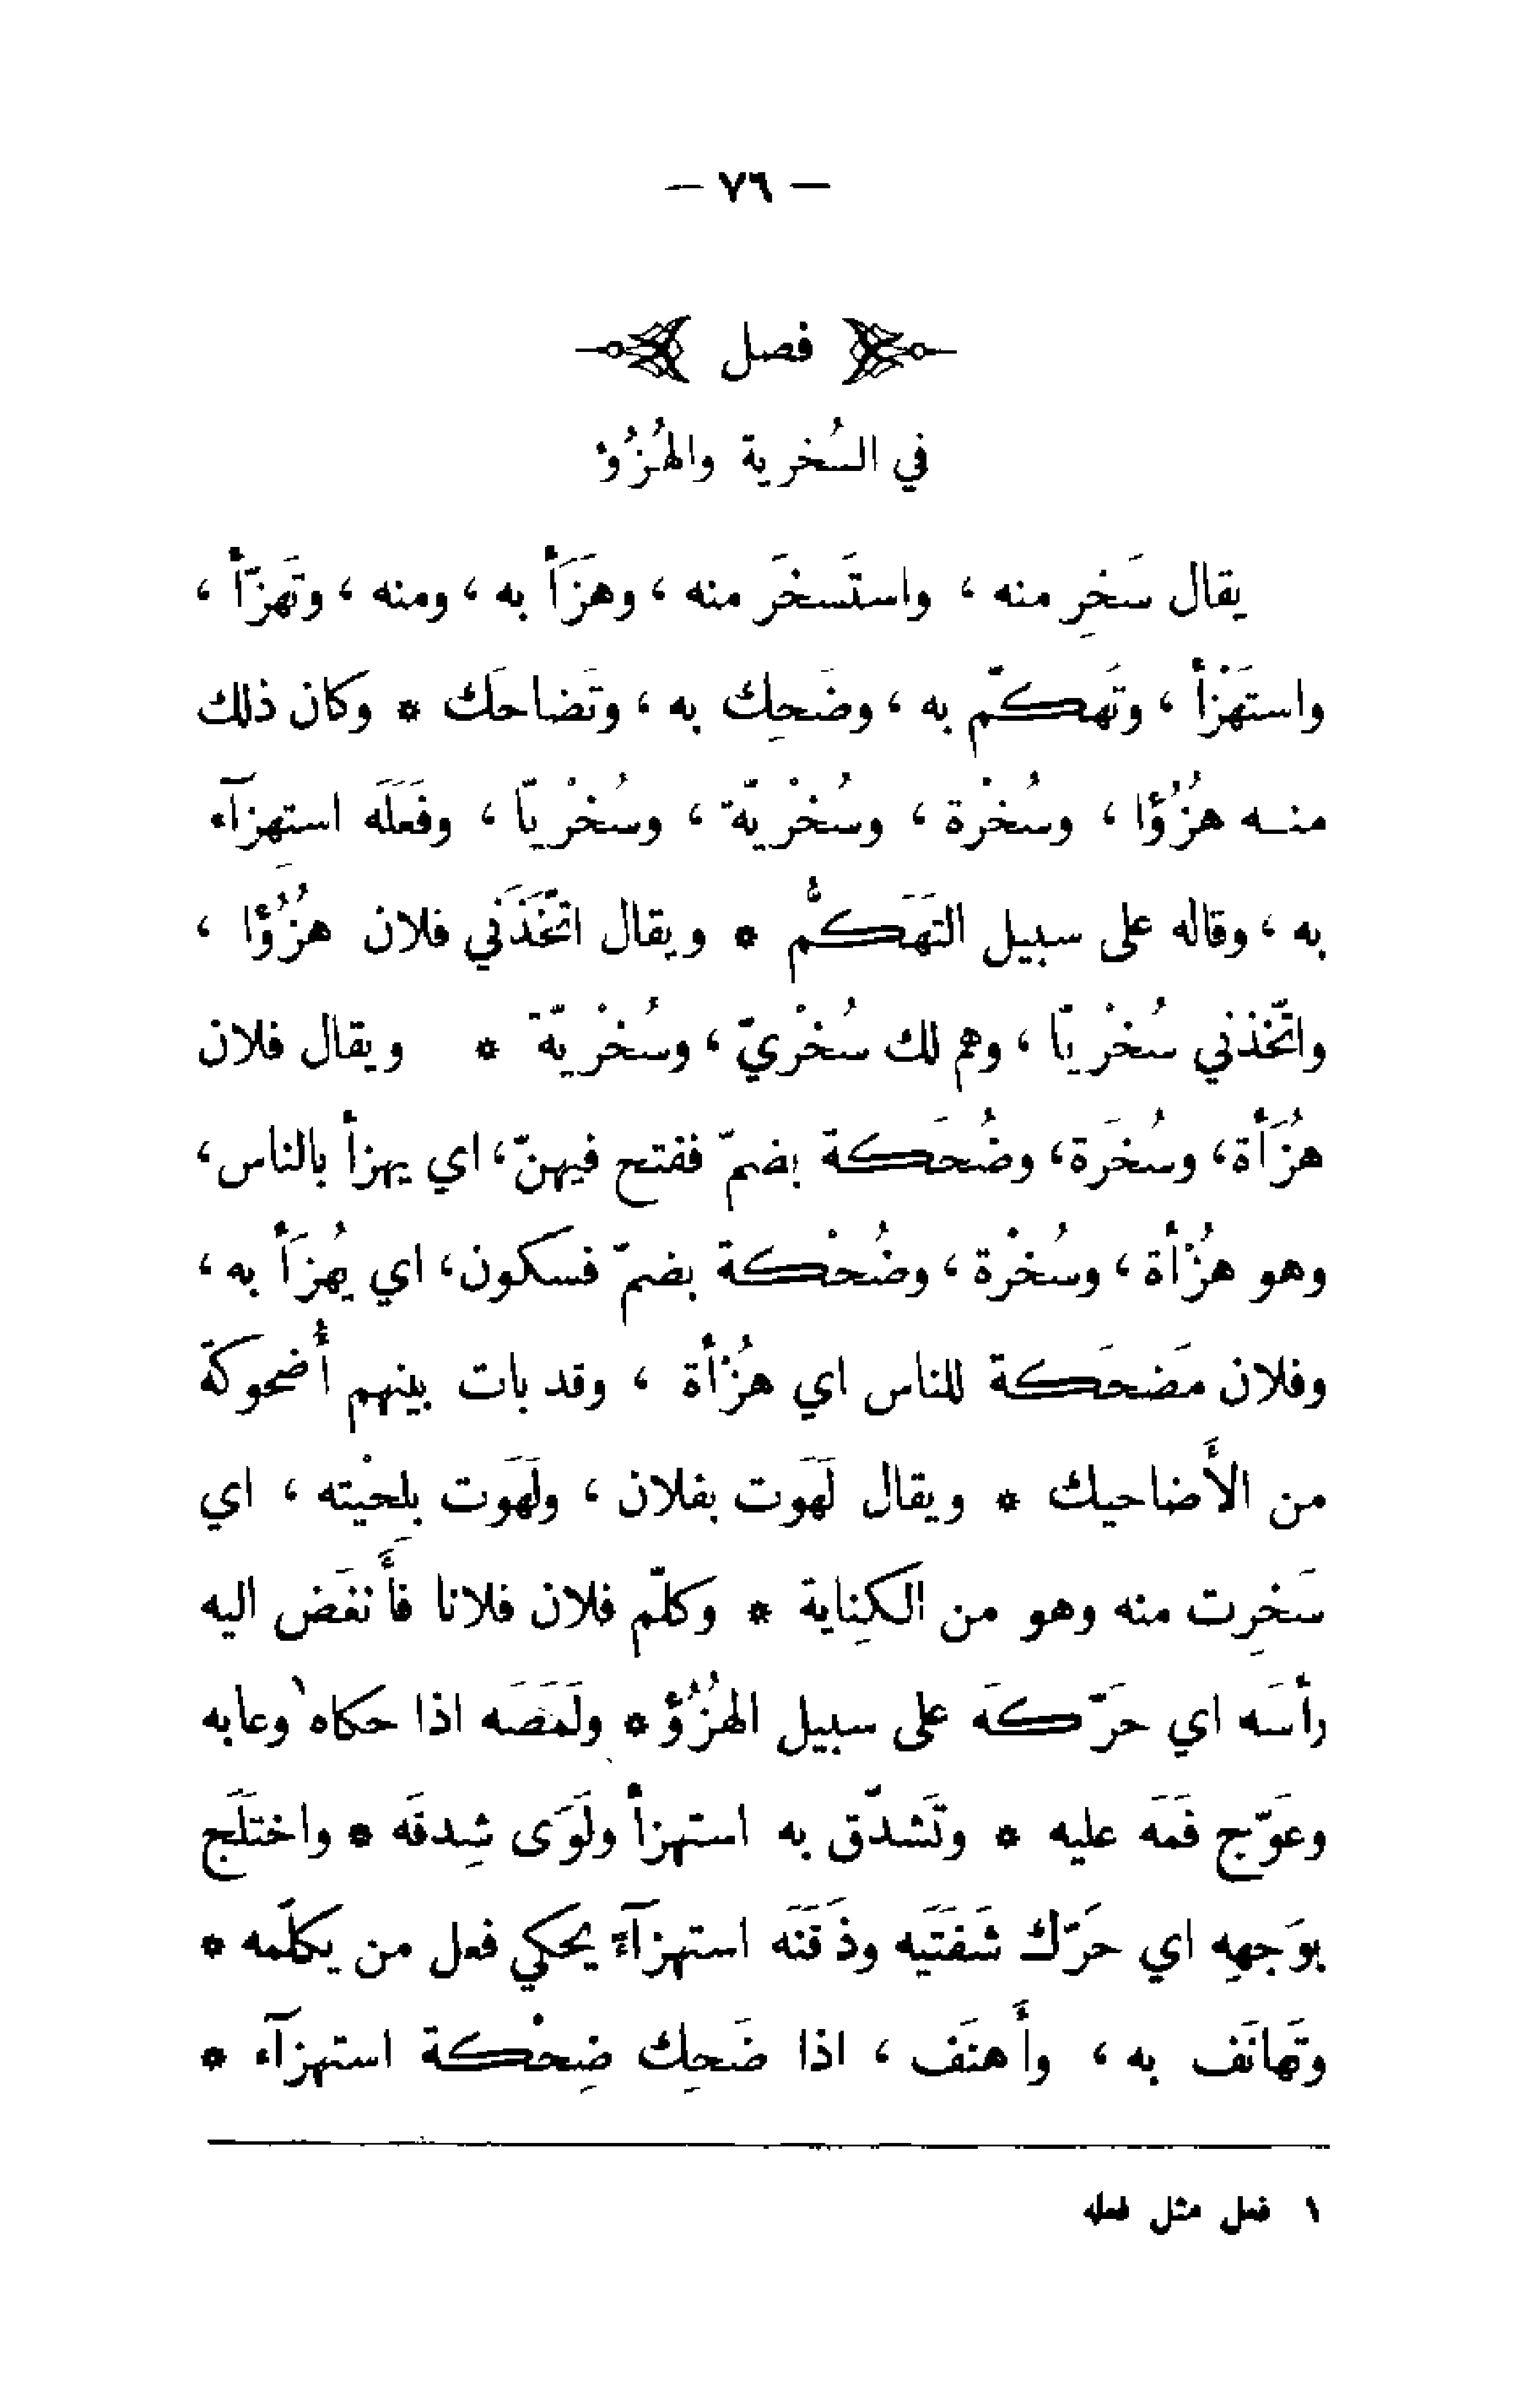 — ٧٦ —
فصل
في السُخرية والهُزُؤ
يقال سَخِر منه ، واستَسخَر منه ، وهزَأَ به ، ومنه ، وتَهزّأ ،
واستَهْزأ ، وتَهكّم به ، وضَحِك به ، وتَضاحَك * وكان ذلك
منه هزُؤًا ، وسُخْرة ، وسُخْريّة ، وسُخْريّا ، وفَعَلَه استِهزآء
به ، وقاله على سبيل التَهَكُّم * ويقال اتَّخَذَني فلان هزُؤًا ،
واتّخذني سُخْريّا ، وهم لك سُخْريّ ، وسُخْريّة * ويقال فلان
هُزَأة ، وسُخَرة ، وضُحَكة بضمّ ففتح فيهنّ ، اي يهزأ بالناس ،
وهو هُزْأة ، وسُخْرة ، وضُحْكة بضمّ فسكون ، اي يُهزَأ به ،
وفلان مَضحَكة للناس اي هُزْأة ، وقد بات بينهم أُضحوكة
من الأَضاحيك * ويقال لَهَوت بفلان ، ولَهَوت بلِحْيته ، اي
سَخِرت منه وهو من الكِناية * وكلّم فلان فلانا فأَنغَض اليه
رأسَه اي حَرّكَه على سبيل الهُزُؤ * ولَمَصَه اذا حكاه ١ وعابه
وعَوّج فَمَه عليه * وتَشدّق به استهزأ ولَوَى شِدقَه * واختَلَج
بوَجهِه اي حَرّك شَفَتَيه وذَقَنَه استهزآءً يحكي فعل من يكلّمه *
وتَهانَف به ، وأَهنَف ، اذا ضَحِك ضِحْكة استهزآء *
١ فعل مثل فعله